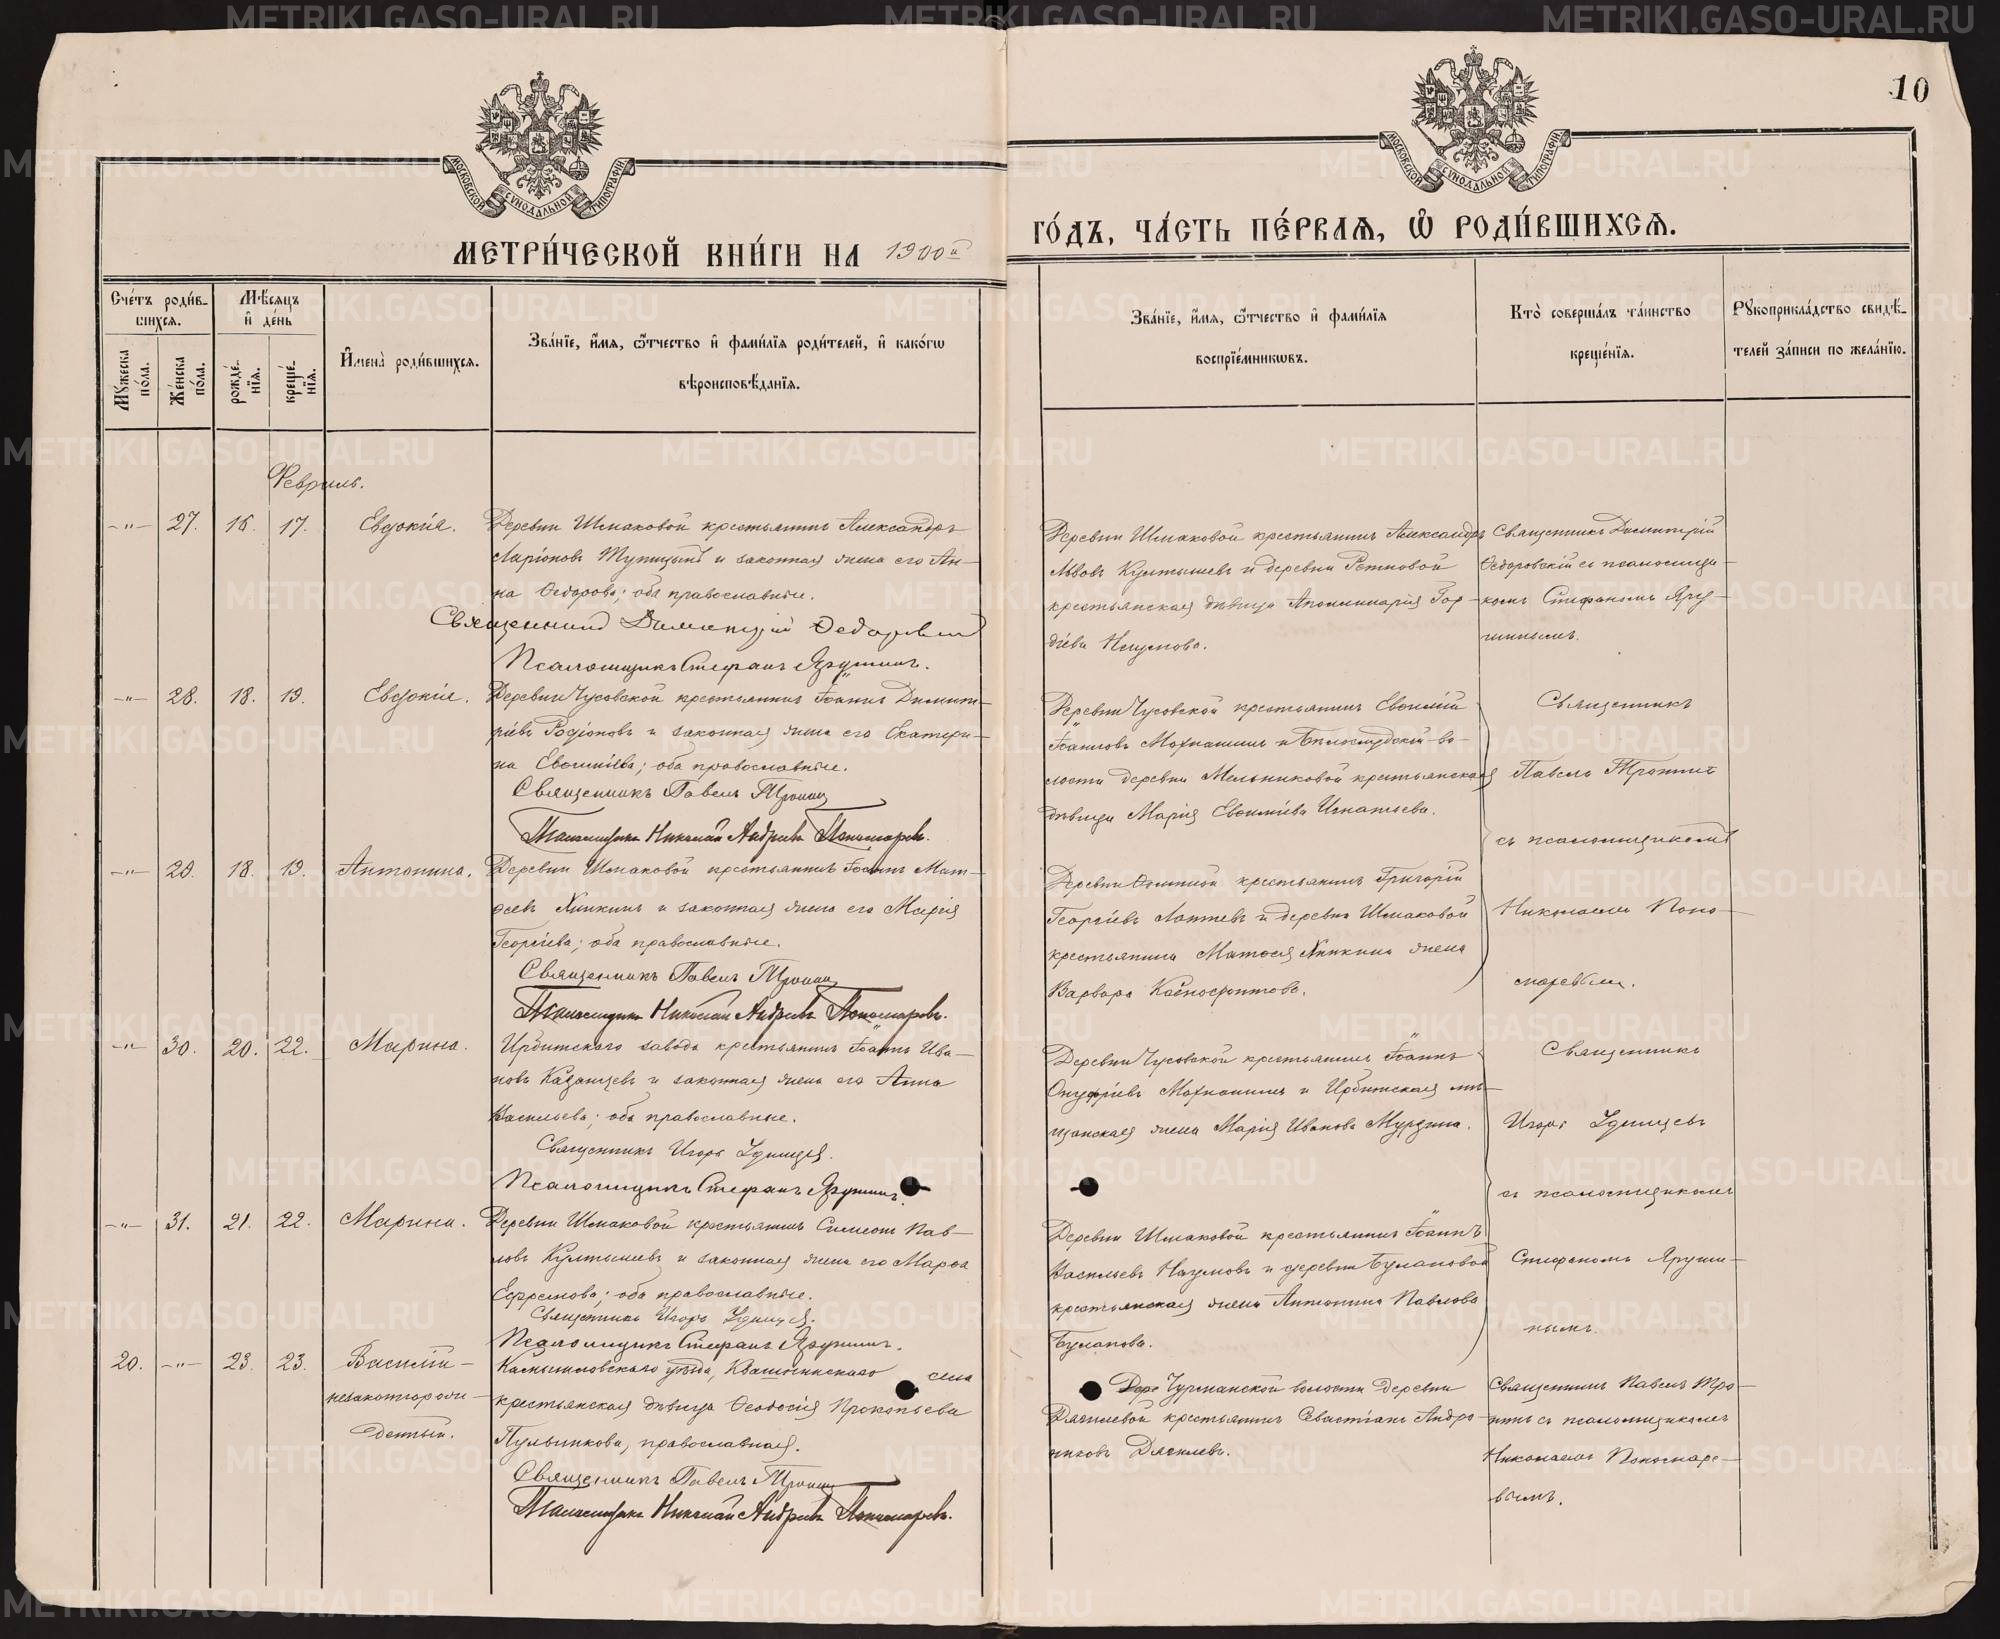 10
МОСКОВСКОЙ СѴНОДАЛЬНОЙ ТИПОГРАФІИ
МОСКОВСКОЙ СѴНОДАЛЬНОЙ ТИПОГРАФІИ
МЕТРИ́ЧЕСКОЙ КНИ́ГИ НА 1900й
ГО́ДЪ, ЧА́СТЬ ПЕ́РВАѦ, Ѡ҆ РОДИ́ВШИХСѦ.
Сче́тъ роди́в-
шихсѧ.
Мѣ́сѧцъ
и҆ де́нь
Мꙋ́жеска по́ла.
Же́нска по́ла.
рожде́-
нїѧ.
креще́-
нїѧ.
И҆мена̀ роди́вшихсѧ.
Зва́нїе, и҆́мѧ, ѻ҆́тчество и҆ фами́лїѧ роди́телей, и҆ како́гѡ
вѣроисповѣ́данїѧ.
Зва́нїе, и҆́мѧ, ѻ҆́тчество и҆ фами́лїѧ
воспрїе́мникѡвъ.
Кто̀ соверша́лъ та́инство
креще́нїѧ.
Рꙋкоприкла́дство свидѣ́-
телей за́писи по жела́нїю.
Февраль.
-"- 27. 16. 17. Евдокія.
Деревни Шмаковой крестьянинъ Александръ
Ларіоновъ Тупицынъ и законная жена его Ан-
на Ѳедорова; оба православные.
Священникъ Димитрій Ѳедоровскій
Псаломщикъ Стефанъ Ярушинъ.
Деревни Шмаковой крестьянинъ Александръ
Львовъ Култышевъ и деревни Речковой
крестьянская дѣвица Аполлинарія Гор-
діева Наумова.
Священникъ Димитрій
Ѳедоровскій съ псаломщи-
комъ Стефаномъ Яру-
шинымъ.
-"- 28. 18. 19. Евдокія.
Деревни Чусовской крестьянинъ Іоаннъ Димит-
ріевъ Родіоновъ и законная жена его Екатери-
на Евѳиміева; оба православные.
Священникъ Павелъ Тронинъ
Псаломщикъ Николай Андреевъ Пономаревъ.
Деревни Чусовской крестьянинъ Евѳимій
Іоанновъ Мохнашинъ и Бѣлослудской во-
лости деревни Мельниковой крестьянская
дѣвица Марія Евѳиміева Игнатьева.
Священникъ
Павелъ Тронинъ
съ псаломщикомъ
-"- 29. 18. 19. Антонина.
Деревни Шмаковой крестьянинъ Іоаннъ Мат-
ѳеевъ Аникинъ и законная жена его Марія
Георгіева; оба православные.
Священникъ Павелъ Тронинъ
Псаломщикъ Николай Андреевъ Пономаревъ.
Деревни Ѳоминой крестьянинъ Григорій
Георгіевъ Лаптевъ и деревни Шмаковой
крестьянина Матѳея Аникина жена
Варвара Ксенофонтова.
Николаемъ Поно-
маревымъ.
-"- 30. 20. 22. Марина.
Ирбитскаго завода крестьянинъ Іоаннъ Ива-
новъ Казанцевъ и законная жена его Анна
Васильева; оба православные.
Священникъ Игорь Удинцевъ.
Псаломщикъ Стефанъ Ярушинъ.
Деревни Чусовской крестьянинъ Іоаннъ
Онуфріевъ Мохнашинъ и Ирбитская мѣ-
щанская жена Марія Иванова Мурзина.
Священникъ
Игорь Удинцевъ
съ псаломщикомъ
-"- 31. 21. 22. Марина.
Деревни Шмаковой крестьянинъ Симеонъ Пав-
ловъ Култышевъ и законная жена его Марѳа
Ефремова; оба православные.
Священникъ Игорь Удинцевъ.
Псаломщикъ Стефанъ Ярушинъ.
Деревни Шмаковой крестьянинъ Іоаннъ
Васильевъ Наумовъ и деревни Булановой
крестьянская жена Антонина Павлова
Буланова.
Стефаномъ Яруши-
нымъ.
20. -"- 23. 23. Василій -
незаконнорож-
денный.
Камышловскаго уѣзда, Квашнинскаго села
крестьянская дѣвица Ѳеодосія Прокопьева
Пульникова, православная.
Священникъ Павелъ Тронинъ
Псаломщикъ Николай Андреевъ Пономаревъ.
Дере Чурманской волости деревни
Дягилевой крестьянинъ Севастіанъ Андро-
никовъ Дягилевъ.
Священникъ Павелъ Тро-
нинъ съ псаломщикомъ
Николаемъ Пономаре-
вымъ.
METRIKI.GASO-URAL.RU